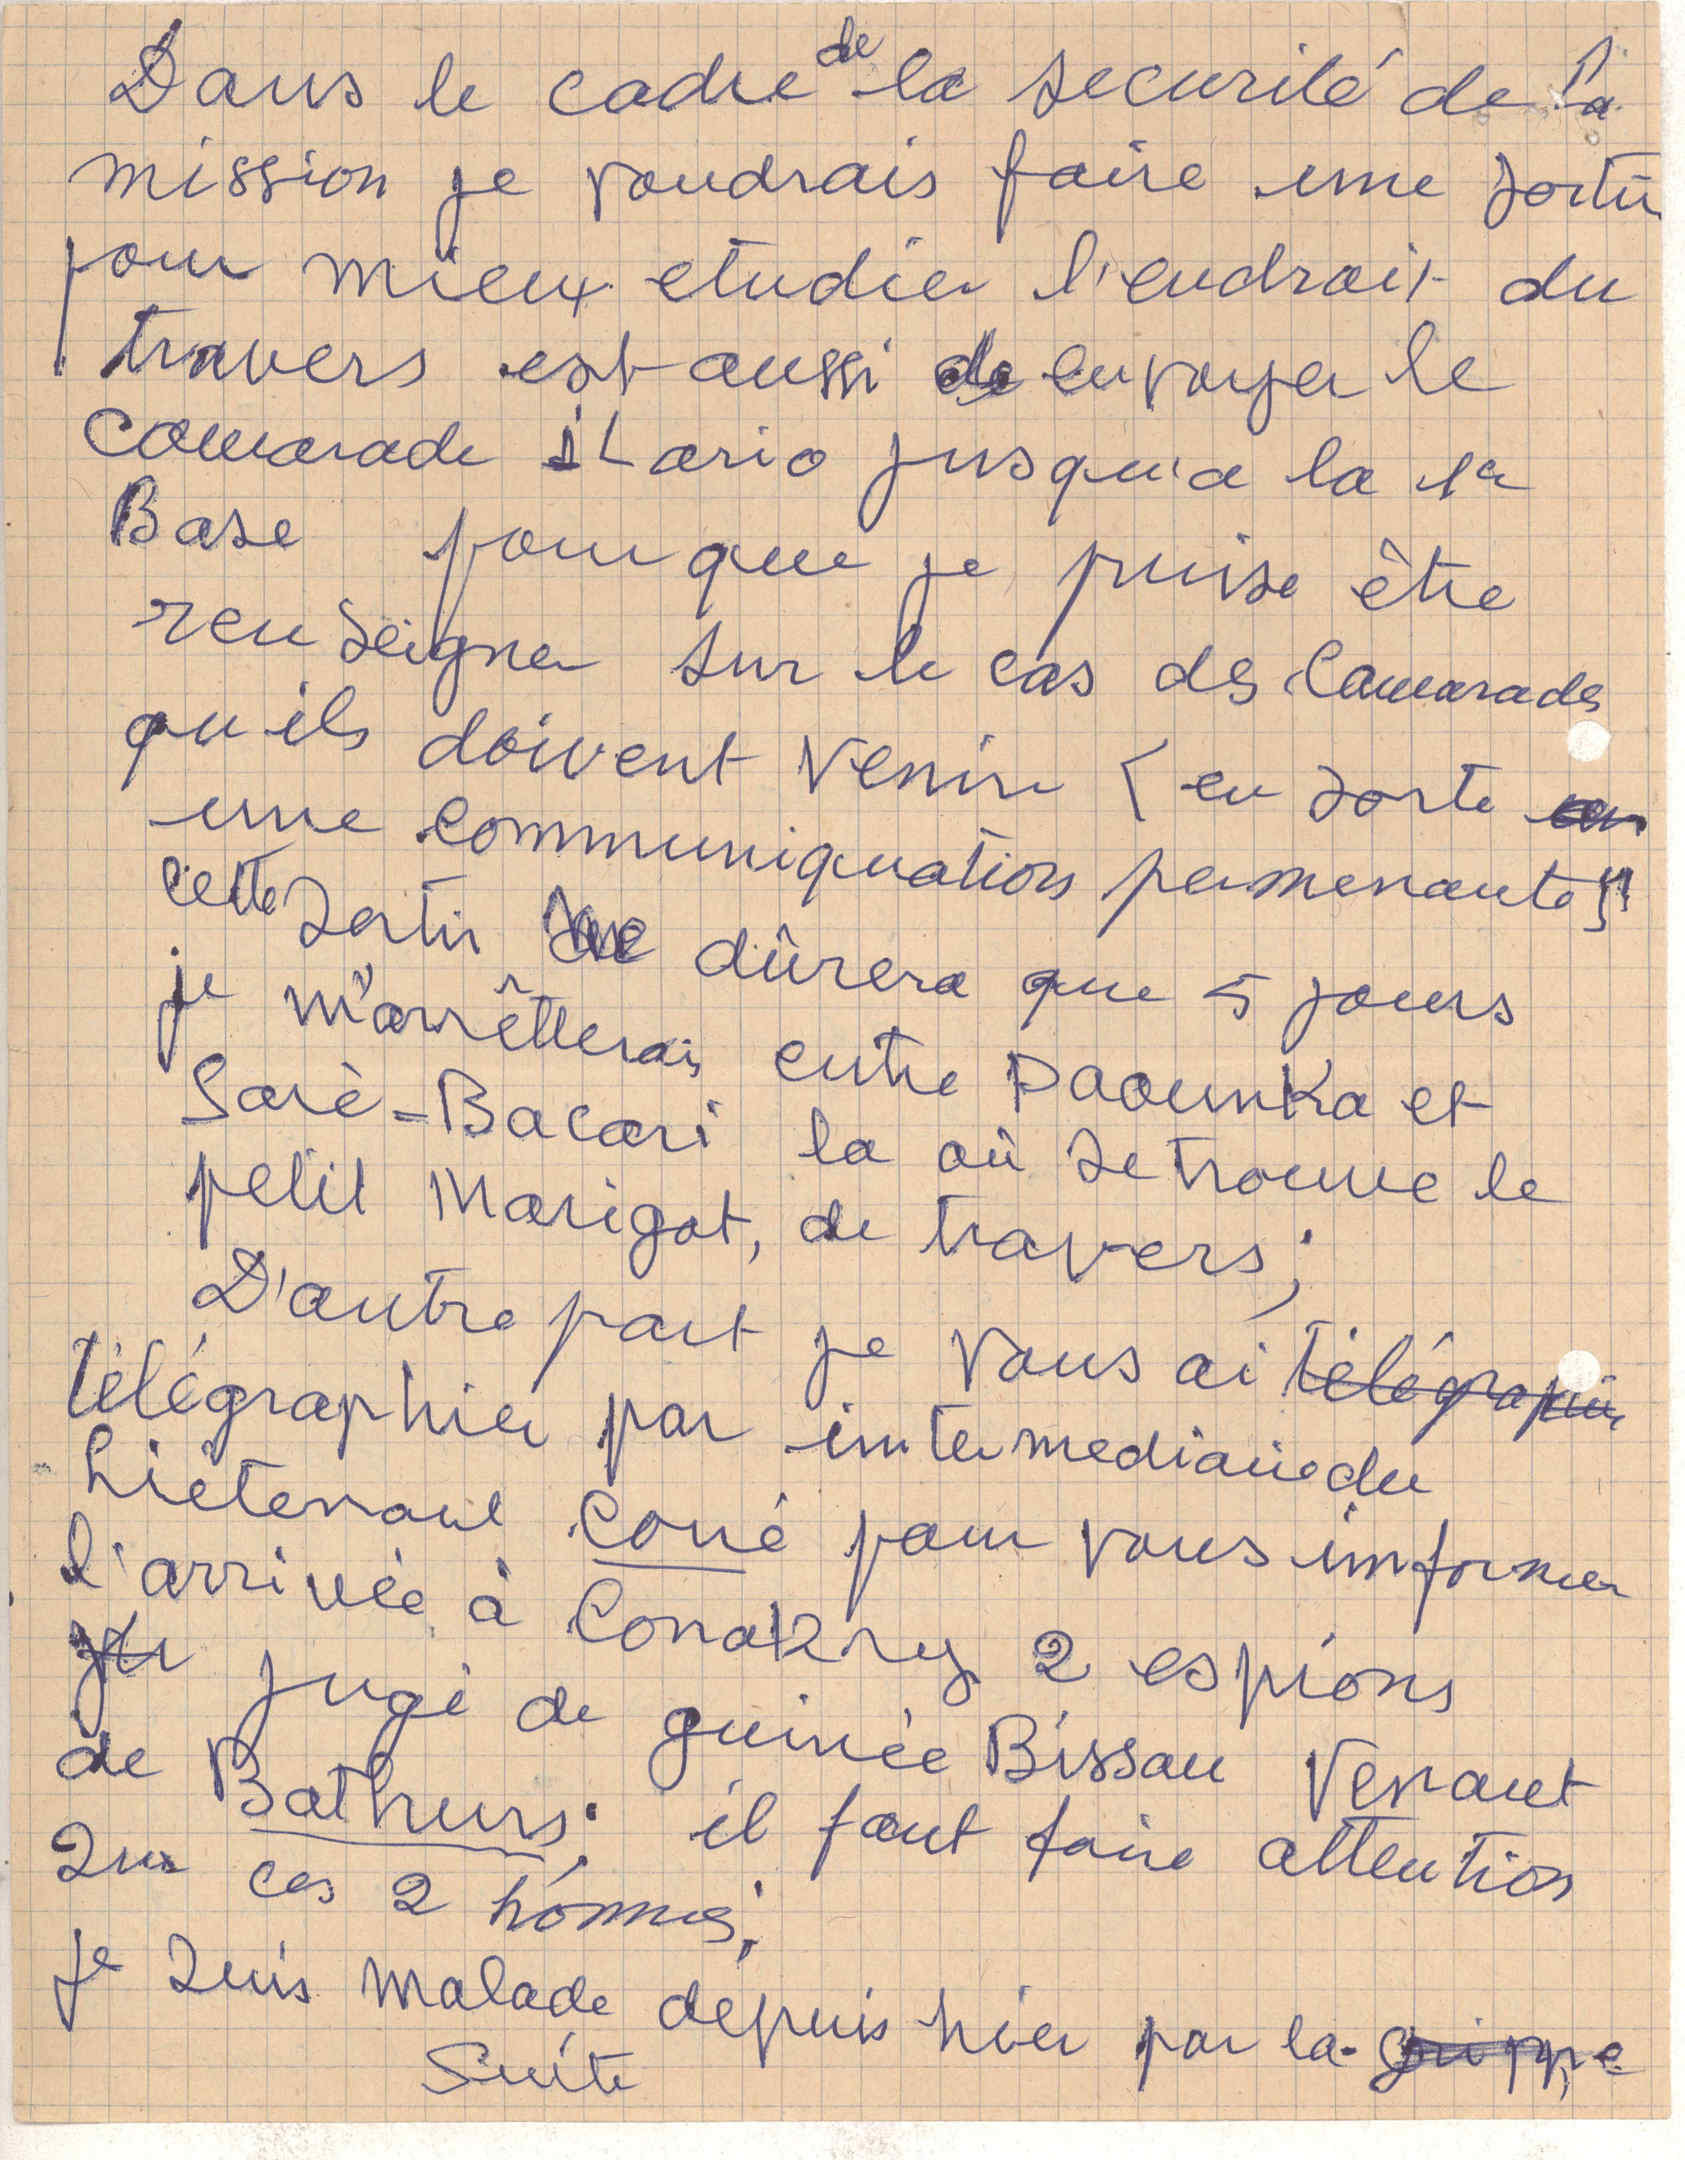 Dans le cadre de la securité de la
mission je voudrais faire une sortir
pour mieux etudier l'endroit du
travers est aussi de envoyer le
Camarade iLario jusqu'a la 1er
Base pour que je puise être
renseigner sur le cas des Camarades
qu'ils doivent venir (en sorte
une communiquation permenante)"
cette sortir ne dûrera que 5 jours
je m'arrêtterais entre Paounka et
Sarè-Bacari la où se trouve le
petit Marigot, de travers;
D'autre part je vous ai télégraphier
télégraphier par intermediaire du
Liètenant Coné pour vous informer
l'arrivée à Conakry 2 espions
jugé de guinée Bissau Venant
de Bathurs; il faut faire attention
sur ces 2 hommes;
je suis malade depuis hier par la grippe
Suite